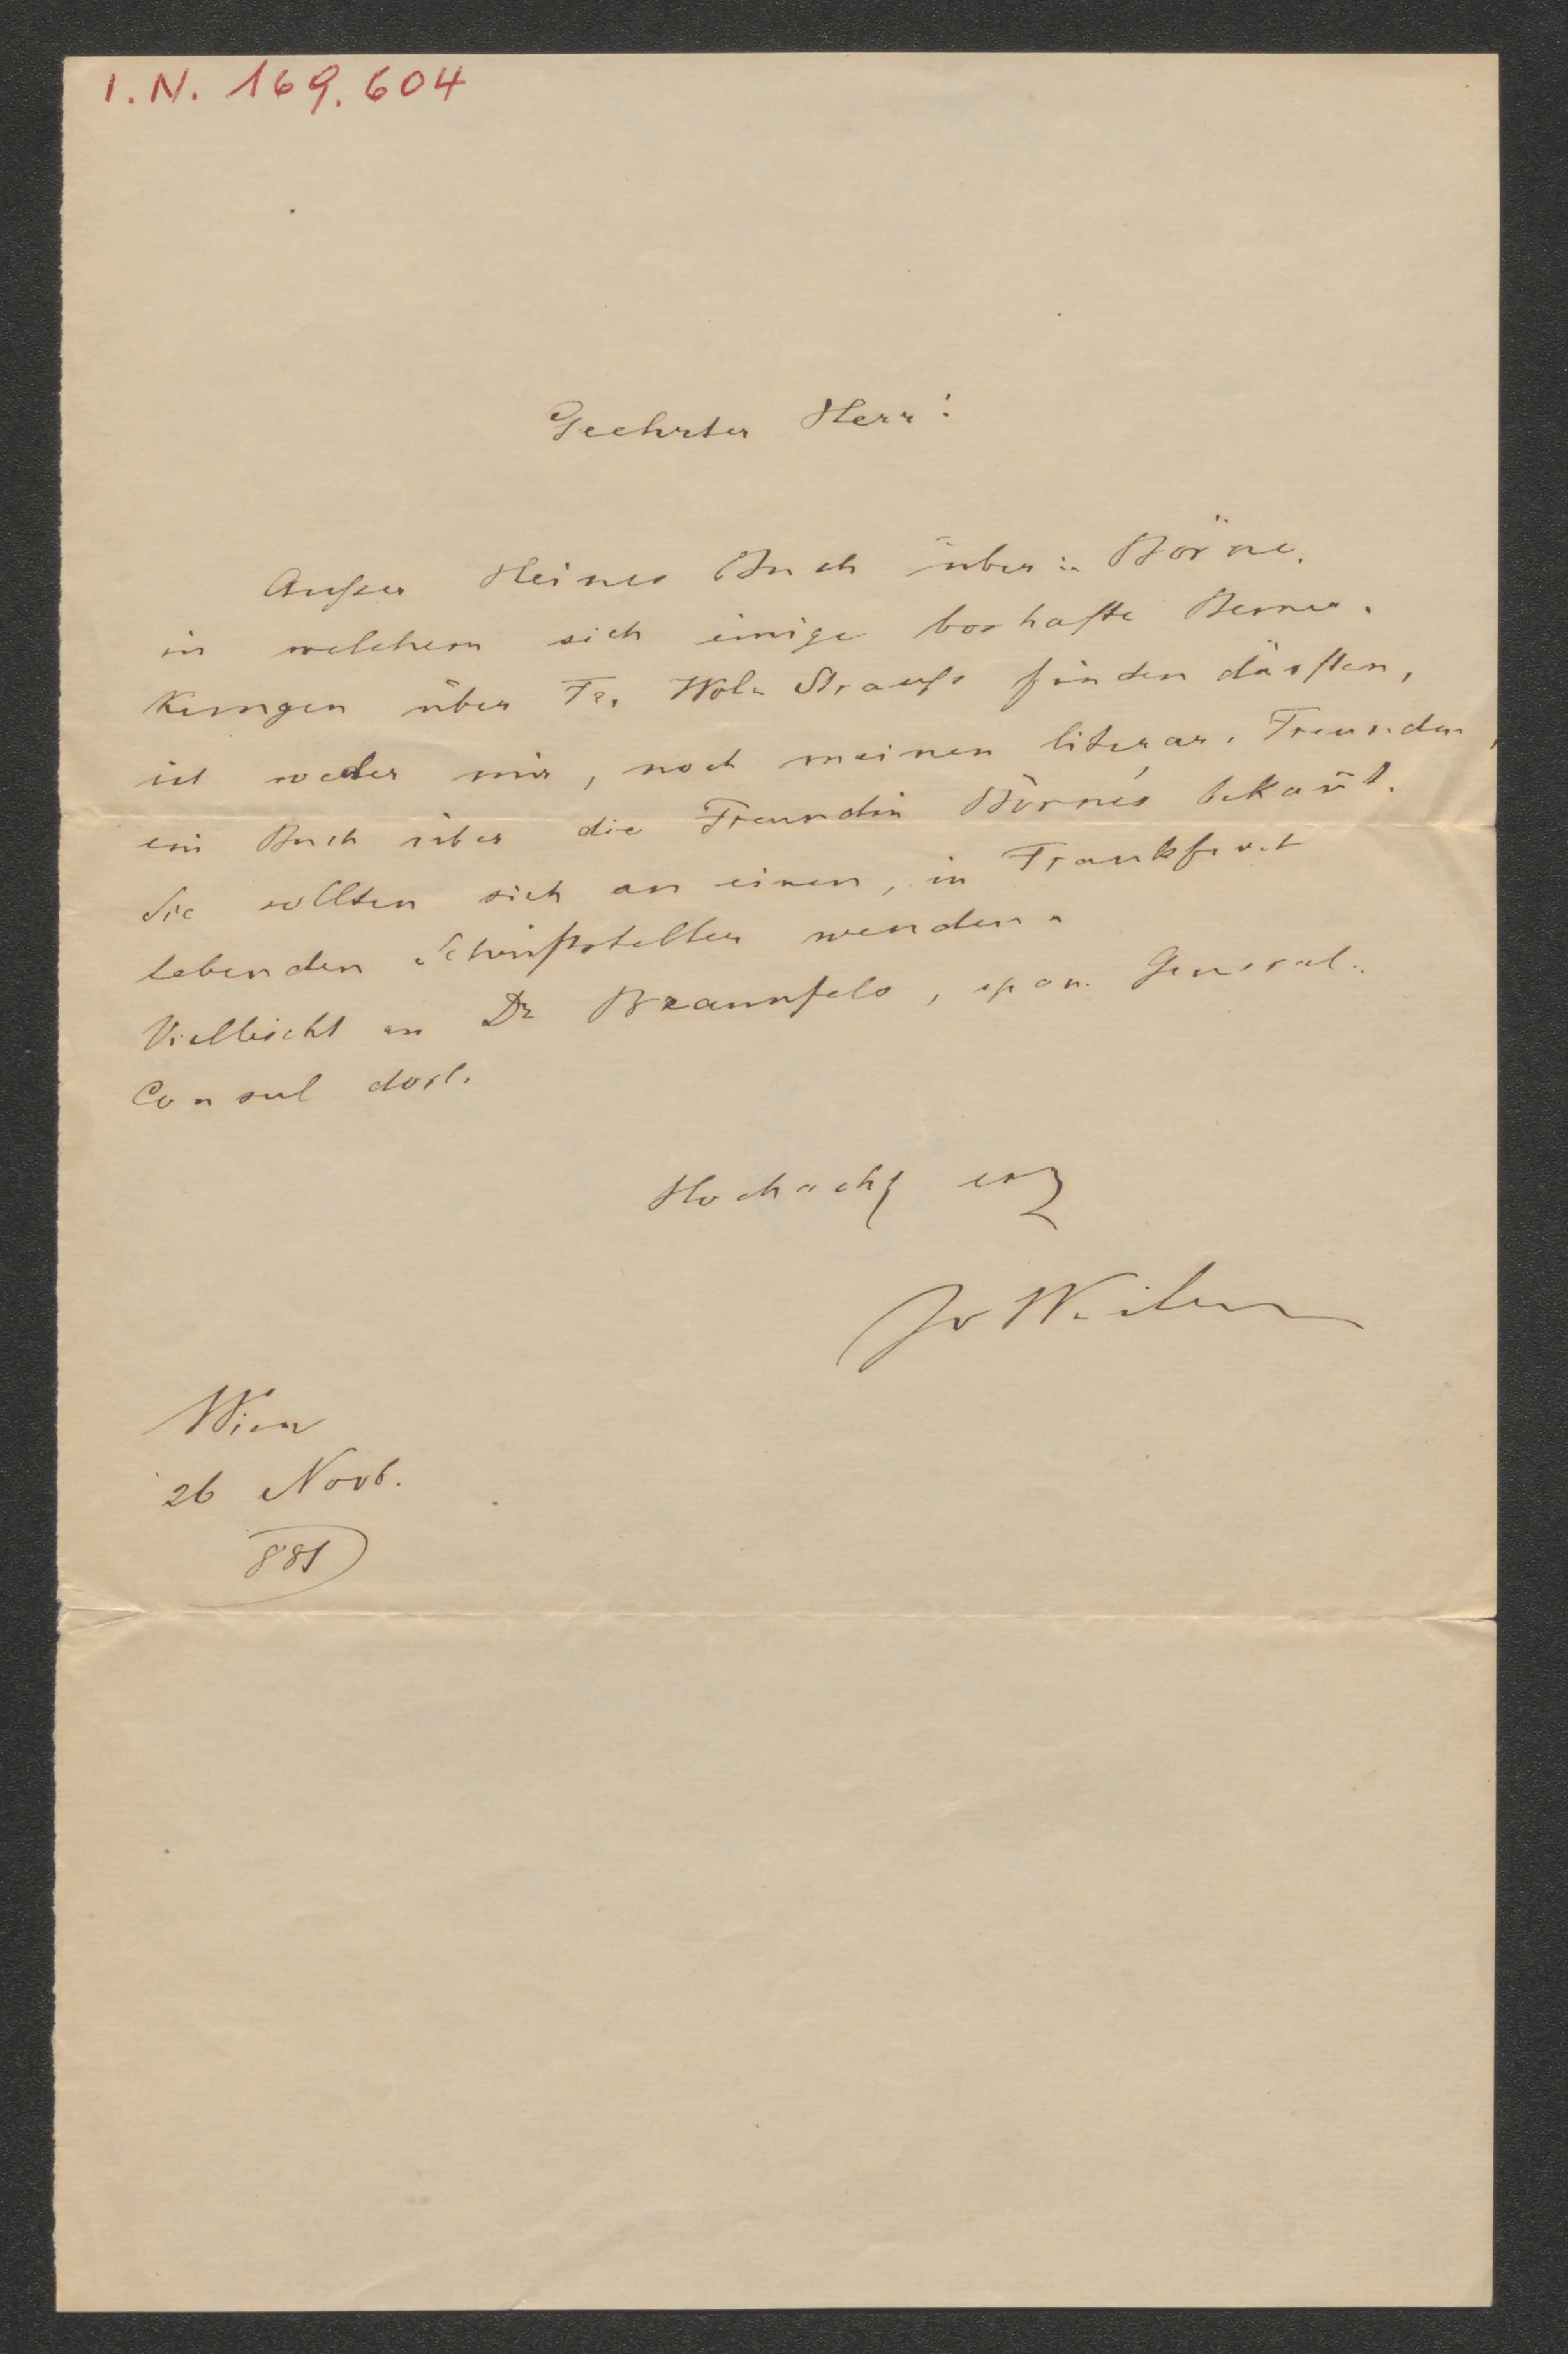 I.N. 169.604
Geehrter Herr!
Außer Heines Buch über Börne,
in welchem sich einige boshafte Bemer-
kungen über Fr. Wohl Strauß finden dürften,
ist weder mir, noch meinen literar. Freunden,
ein Buch über die Freundin Börne's bekañt.
Sie sollten sich an einen, in Frankfurt
lebenden Schriftsteller wenden.
Vielleicht an Dr Braunfels, span. General-
Consul dort.
Hochacht
Jv Weilen
Wien
26 Novb.
881